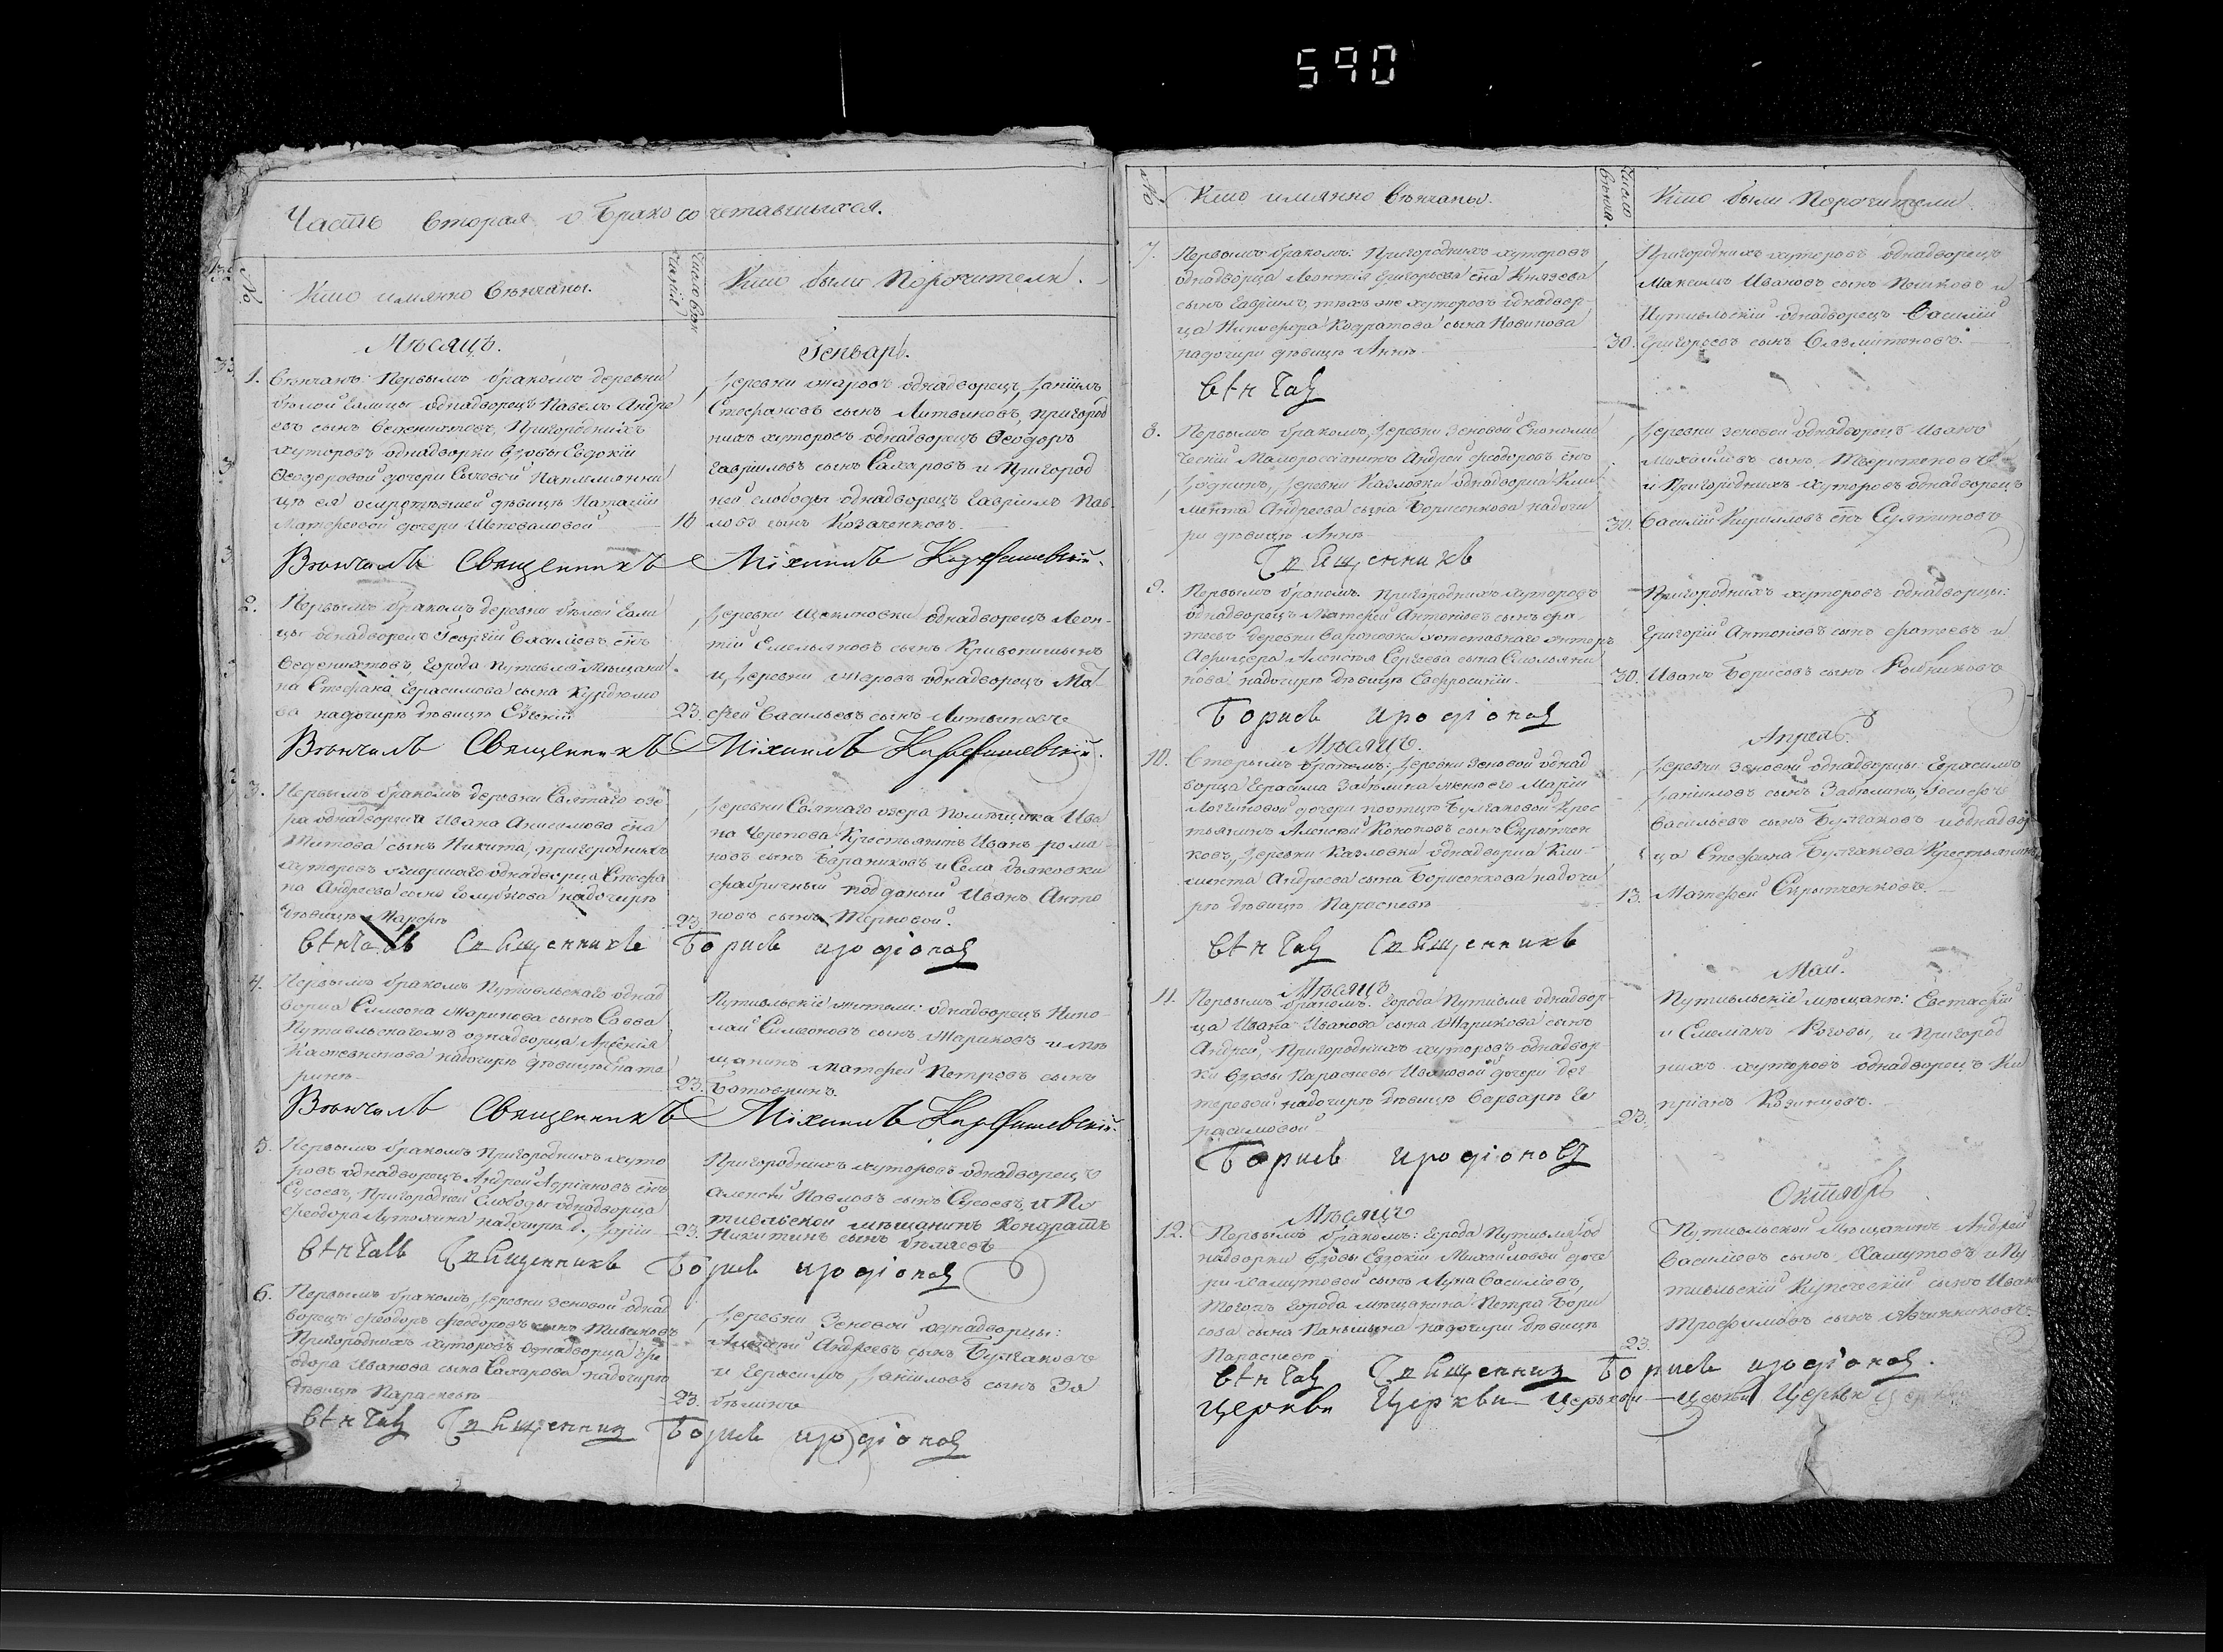 590
Часть вторая о бракосочетавшихся.
№
Кто имянно венчаны.
Число венчаний
Кто были Порочители.
Месяцъ.
Генварь.
1. Венчанъ: Первымъ бракомъ деревни
белой Галицы однадворецъ Павелъ Андре
евъ сынъ Пригородныхъ
хуторовъ однадворки вдовы Евдокии
Феодоровой дочери
ця ея осиротевшей девице Наталии
Матфеевой дочери Шеповаловой
10
Деревни однадворецъ Даниилъ
Стефановъ сынъ Литвиновъ, пригород
нихъ хуторовъ однадворецъ Феодоръ
Гавриловъ сынъ Сахаровъ и Пригород
ней слободы однадворецъ Гавриилъ Пав
ловъ сынъ Козаченковъ.
Венчалъ Священникъ Михаилъ
2. Первымъ бракомъ деревни белой Гали
цы однадворецъ Георгий Василиевъ снъ
города Путивля мещани
на Стефана Герасимова сына Курдюмо
ва надочире девице Евгении
23.
Деревни Щекиновки однадворецъ Леон-
тий Емельяновъ сынъ
и Деревни однадворецъ Мат
фей Васильевъ сынъ Литвиновъ
Венчалъ Священникъ Михаилъ
3. Первымъ бракомъ деревни Святаго озе
ра однадворца Ивана Анисимова сна
Титова сынъ Никита, пригородныхъ
хуторовъ однадворца Стефа
на Андреева сына Голубкова надочире
девице Марфе
23
Деревни Святаго озера помещика Ива
на Черепова Крестьянинъ Иванъ Рома
новъ сынъ Бараниковъ и Села дьяковки
фабричный подданый Иванъ Анто
новъ сынъ Терновой.
венчалъ священникъ Борисъ иродионов
4. Первымъ бракомъ Путивльскаго однад
ворца Симеона Жарикова сынъ Савва
Путивльскагожъ однадворца Арсения
надочире девице Екате
рине
23.
Путивльские жители: однадворецъ Нико-
лай Симеоновъ сынъ Жариковъ и ме
щанинъ Матфей Петровъ сынъ
Батовкинъ.
Венчалъ Священникъ Михаилъ
5. Первымъ бракомъ Пригородныхъ хуто
ровъ однадворецъ Андрей Адриановъ снъ
Сусоевъ, Пригородней Слободы однадворца
Феодора надочире д. Дарии
23.
Пригородныхъ хуторовъ однадворецъ
Алексей Павловъ сынъ Сусоевъ, и Пу
тивльской мещанинъ Кондратъ
Никитинъ сынъ Беляевъ
венчалъ священникъ Борисъ иродионов
6. Первымъ бракомъ, Деревни Зеновой однад
ворецъ Феодоръ Феодоровъ сынъ
Пригородныхъ хуторовъ однадворца Фе
одора Иванова сына Сахарова надочире
девице Параскеве
23.
Деревни Зеновой однадворцы:
Алексей Андреевъ сынъ Булгаковъ
и Герасимъ Данииловъ сынъ За
белинъ
венчал священник Борисъ иродионов
№
Кто имянно венчаны.
Число венчан.
Кто были Порочители.
7. Первымъ бракомъ: Пригородныхъ хуторовъ
однадворца Леонтия Григорьева сна Князева
сынъ Гавриилъ, техъ же хуторовъ однадвор-
ца Никифора Кодратова сына Новикова
надочири девице Анне
30.
Пригородныхъ хуторовъ однадворецъ
Максимъ Ивановъ сынъ Пошковъ и
Путивльский однадворецъ Василий
Григоревъ сынъ
венчал
8. Первымъ бракомъ, Деревни Зеновой Економи
ческий Малоросиянинъ Андрей Феодоровъ снъ
Деревни Казловки однадворца Кли
мента Андреева сына Борисенкова надочи
ри девице Анне
30.
Деревни Зеновой однадворецъ Иванъ
Михайловъ сынъ
и Пригородныхъ хуторовъ однадворецъ
Василий Кирилловъ снъ
священникъ
9. Первымъ бракомъ. Пригородныхъ хуторовъ
однадворецъ Матфей Антоновъ сынъ Фа-
теевъ деревни
Афицера Алексея Сергеева сына Смольяни
нова надочире девице Евфросинии.
30.
Пригородныхъ хуторовъ однадворцы:
Григорий Антоновъ сынъ Фатеевъ и
Иванъ Борисовъ сынъ
Борисъ иродионов
Месяцъ.
Апрель.
10. Вторымъ бракомъ: Деревни Зеновой однад
ворца Герасима Забелина Марии
Логгиновой дочери поотцу Булгаковой крес
тьянинъ Алексей Кононовъ сынъ Скрыпчен
ковъ, Деревни Казловки однадворца Кли-
мента Андреева сына Борисенкова надочи
ре девице Параскеве
13.
Деревни Зеновой однадворцы Герасимъ
Данииловъ сынъ Забелинъ, Иосифъ
Васильевъ сынъ Булгаковъ и однадвор
ца Стефана Булгакова Крестьянинъ
Матфей Скрыпченковъ.
венчал священникъ
Месяцъ
Май.
11. Первымъ бракомъ. города Путивля однадвор-
ца Ивана Иванова сына Жарикова сынъ
Андрей, Пригородныхъ хуторовъ однадвор
ки вдовы Параскевы Ивановой дочери Дег
теревой надочире девице Варваре Ге
расимовой
23.
Путивльские мещане: Евстафий
и Емелианъ Роговы, и Пригород
нихъ хуторовъ однадворецъ Ки
приянъ
Борисъ иродионов
Месяцъ
Октябрь
12. Первымъ бракомъ: города Путивля од
надворки вдовы Евдокии Михайловой доче
ри Хамутовой сынъ Лука Василиевъ,
тогожъ города мещанина Петра Бори
сова сына Паньшина надочири девице
Параскеве
23.
Путивльской мещанинъ Андрей
Василиевъ сынъ Хамутовъ и Пу
тивльский Купеческий сынъ Иванъ
Трофимовъ сынъ
венчал священник Борисъ иродионов.
церкви Церкви церкви церкви Церкви